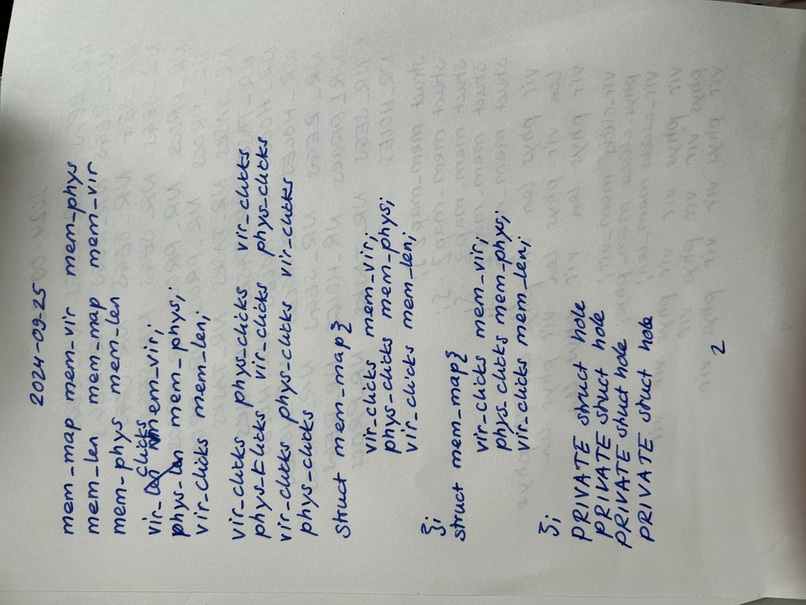 2024-09-25
mem_map mem_vir mem_phys
mem_len mem_map mem_vir
mem_phys mem_len
clicks
vir_len mem_vir;
phys_len mem_phys;
vir_clicks mem_len;
vir_clicks phys_clicks vir_clicks
phys_clicks vir_clicks phys_clicks
vir_clicks phys_clicks vir_clicks
phys_clicks
struct mem_map{
vir_clicks mem_vir;
phys_clicks mem_phys;
vir_clicks mem_len;
};
struct mem_map{
vir_clicks mem_vir;
phys_clicks mem_phys;
vir_clicks mem_len;
};
PRIVATE struct hole
PRIVATE struct hole
PRIVATE struct hole
PRIVATE struct hole
2